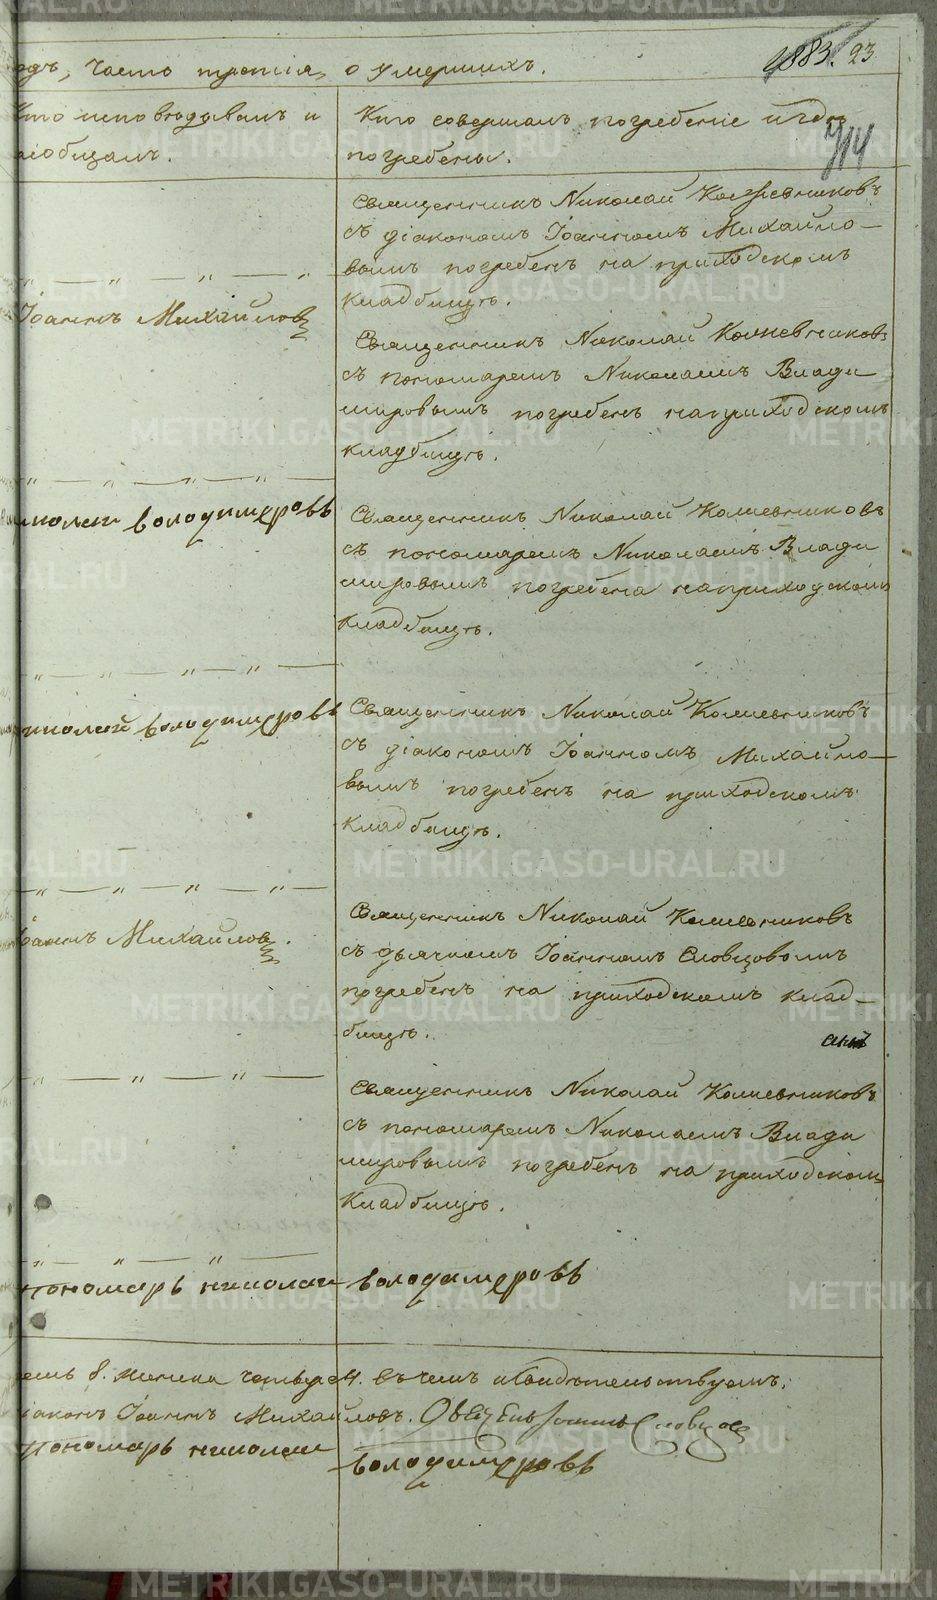 одъ, часть третія, о умершихъ. 1883. 23
Кто исповѣдывалъ и
пріобщалъ.
Кто совершалъ погребеніе и гдѣ
погребены.
714
Священникъ Николай Кожевниковъ
съ діакономъ Іоанномъ Михайло—
вымъ погребенъ на приходскомъ
кладбищѣ.
Іоаннъ Михайловъ
Священникъ Николай Кожевниковъ
съ пономаремъ Николаемъ Влади
мировымъ погребенъ на приходскомъ
кладбищѣ.
николаи володимеровъ
Священникъ Николай Кожевниковъ
съ пономаремъ Николаемъ Влади
мировымъ погребена на приходскомъ
кладбищѣ.
николай володимеровъ
Священникъ Николай Кожевниковъ
съ діакономъ Іоанномъ Михайло—
вымъ погребенъ на приходскомъ
кладбищѣ.
Іоаннъ Михайловъ.
Священникъ Николай Кожевниковъ
съ дьячкомъ Іоанномъ Словцовымъ
погребенъ на приходскомъ клад—
бищѣ.
Священникъ Николай Кожевниковъ
съ пономаремъ Николаемъ Влади
мировымъ погребенъ на приходскомъ
кладбищѣ.
пономарь николаи володимеровъ
емъ 8. женска четыре 4. въ чемъ и свидѣтельствуемъ.
діаконъ Іоаннъ Михайловъ. Словцовъ
пономарь николаи володимеровъ
METRIKI.GASO-URAL.RU